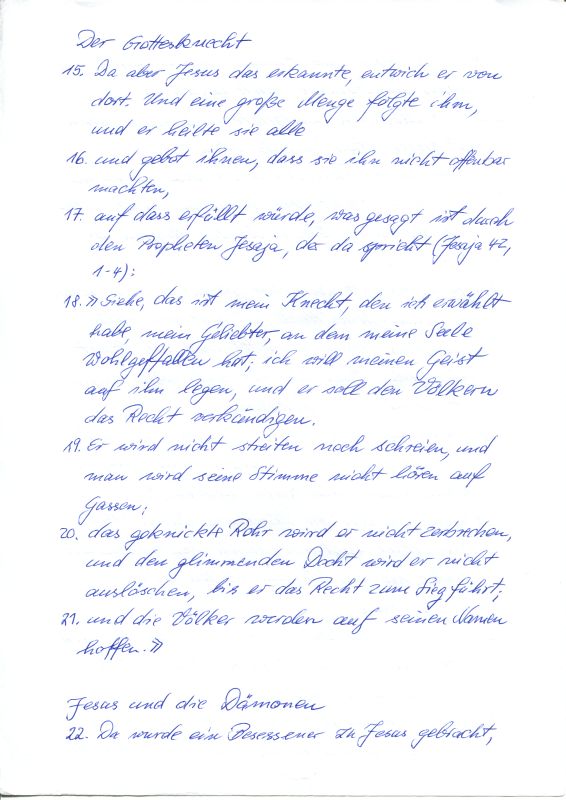 Der Gottesknecht
15. Da aber Jesus das erkannte, entwich er von
dort. Und eine große Menge folgte ihm,
und er heilte sie alle
16. und gebot ihnen, dass sie ihn nicht offenbar
machten,
17. auf dass erfüllt würde, was gesagt ist durch
den Propheten Jesaja, der da spricht (Jesaja 42,
1-4):
18. »Siehe, das ist mein Knecht, den ich erwählt
habe, mein Geliebter, an dem meine Seele
Wohlgefallen hat; ich will meinen Geist
auf ihn legen, und er soll den Völkern
das Recht verkündigen.
19. Er wird nicht streiten noch schreien, und
man wird seine Stimme nicht hören auf
Gassen;
20. das geknickte Rohr wird er nicht zerbrechen,
und den glimmenden Docht wird er nicht
auslöschen, bis er das Recht zum Sieg führt;
21. und die Völker werden auf seinen Namen
hoffen.»
Jesus und die Dämonen
22. Da wurde ein Besessener zu Jesus gebracht,